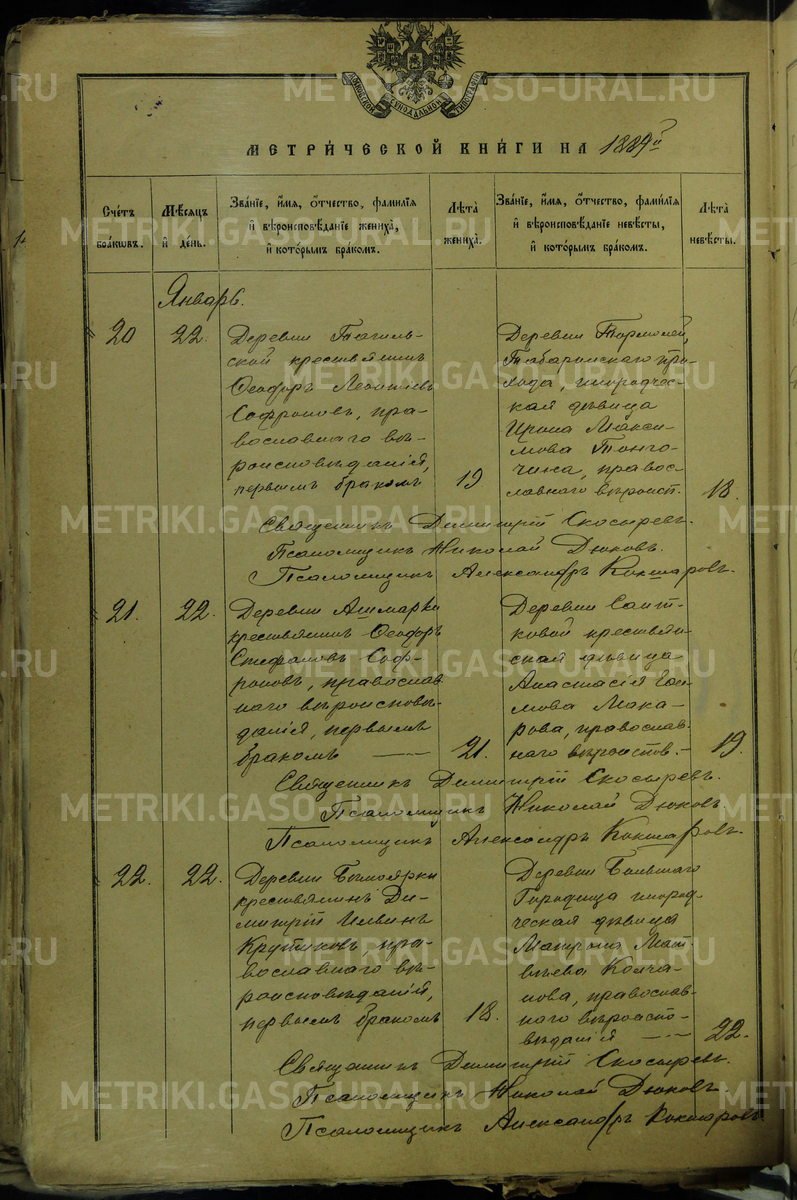 МОСКОВСКОЙ СИНОДАЛЬНОЙ ТИПОГРАФІИ
МЕТРИ́ЧЕСКОЙ КНИ́ГИ НА 1889й
Сче́тъ бра́кωвъ.
Мѣ́сяцъ и҆ де́нь.
Зва́нїе, и҆́мя, ѻ҆́тчество, фамилїя
и҆ вѣроисповѣ́данїе жениха̀,
и҆ кото́рымъ бра́комъ.
Лѣ́та жениха̀.
Зва́нїе, и҆́мя, ѻ҆́тчество, фамилїя
и҆ вѣроисповѣ́данїе невѣ́сты,
и҆ кото́рымъ бра́комъ.
Лѣ́та невѣ́сты.
Январь.
20
22.
Деревни Тагиль-
ской крестьянинъ
Ѳеодоръ Леонтіевъ
Софроновъ, пра-
вославнаго вѣ-
роисповѣданія,
первымъ бракомъ
19
Деревни
Табаринскаго при-
хода, инородчес-
кая дѣвица
Ирина Макси-
мова
правос-
лавнаго вѣроисп.
18.
Священникъ Димитрій Скосыревъ.
Псаломщикъ Николай Дюковъ.
Псаломщикъ Александръ Кокшаровъ.
21.
22.
Деревни Ашмарки
крестьянинъ Ѳеодоръ
Стефановъ Соф-
роновъ, православ
наго вѣроисповѣ-
данія, первымъ
бракомъ —
21.
Деревни Саит-
ковой крестьян-
ская дѣвица
Анастасія
мова Мака-
рова, православ-
наго вѣроиспов. -
19.
Священникъ Димитрій Скосыревъ.
Псаломщикъ Николай Дюковъ.
Псаломщикъ Александръ Кокшаровъ.
22.
22.
Деревни Бѣлоярки
крестьянинъ Ди-
митрій Ильинъ
Крутиковъ, пра-
вославнаго вѣ-
роисповѣданія,
первымъ бракомъ
18.
Деревни Большаго
Городища инород-
ческая дѣвица
Матрона Мат-
вѣева Колча-
нова, православ-
наго вѣроиспо-
вѣданія —
22.
Священникъ Димитрій Скосыревъ.
Псаломщикъ Николай Дюковъ.
Псаломщикъ Александръ Кокшаровъ.
METRIKI.GASO-URAL.RU